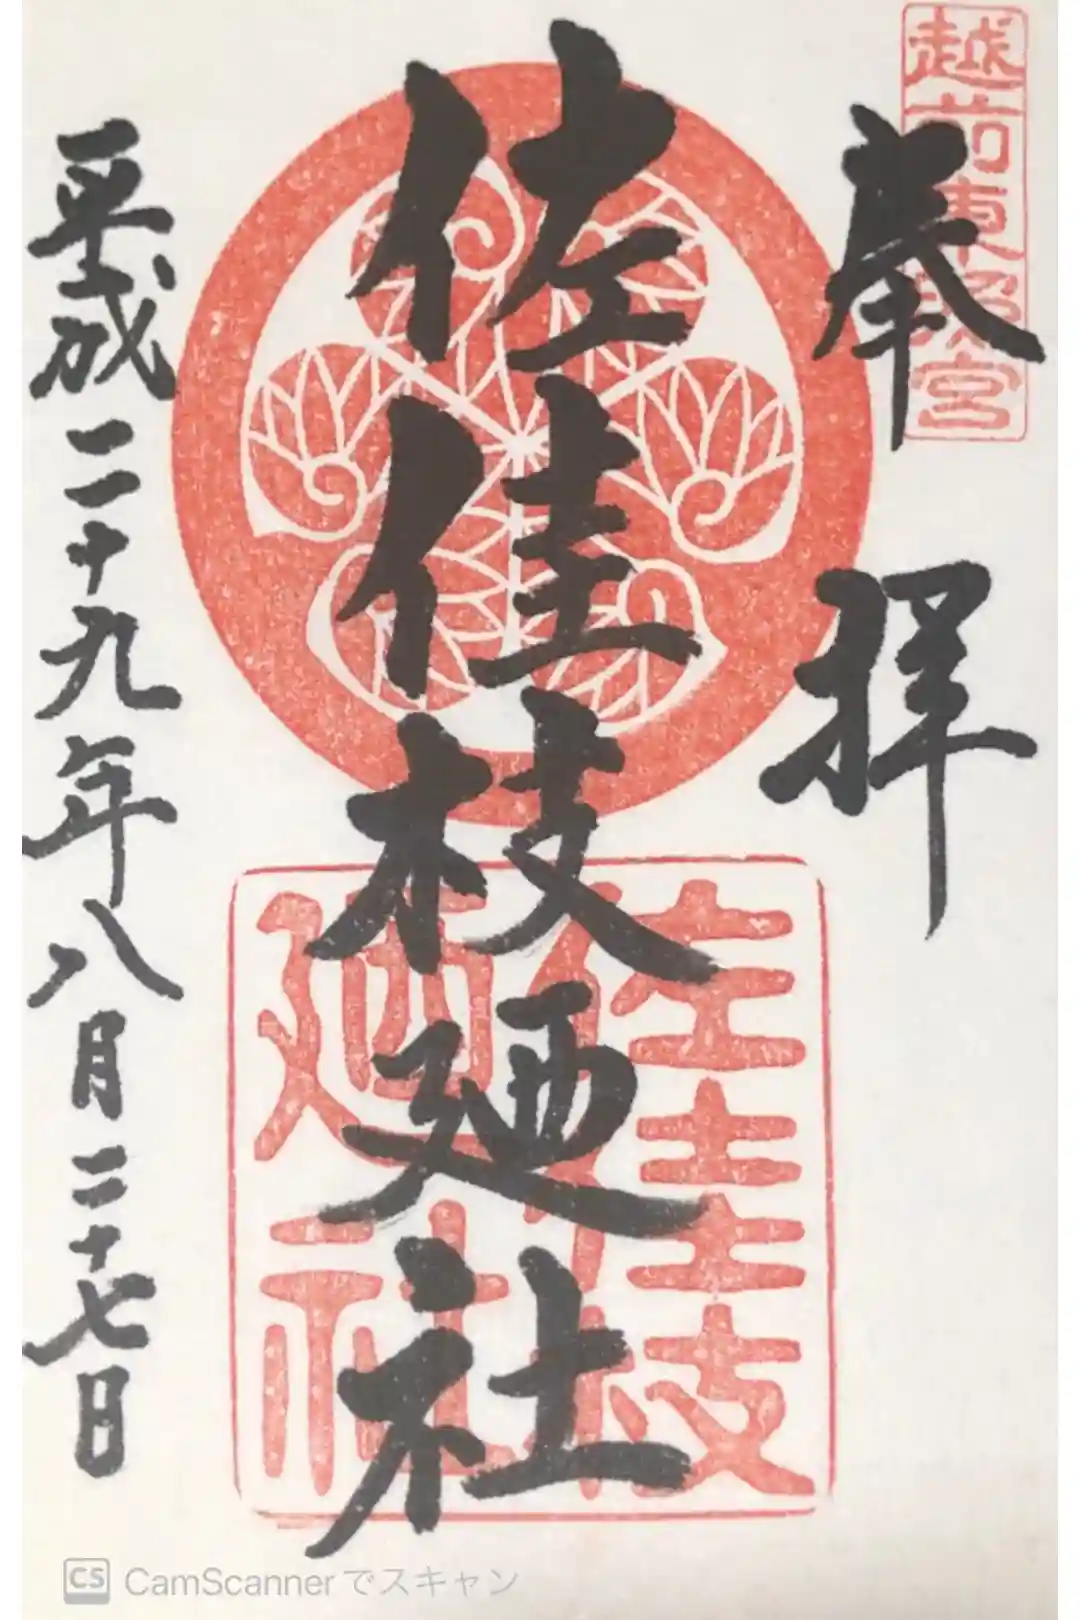 越前東照宮
奉拝
佐佳枝廼社
佐佳枝廼社
平成二十九年八月二十七日
CS CamScannerでスキャン